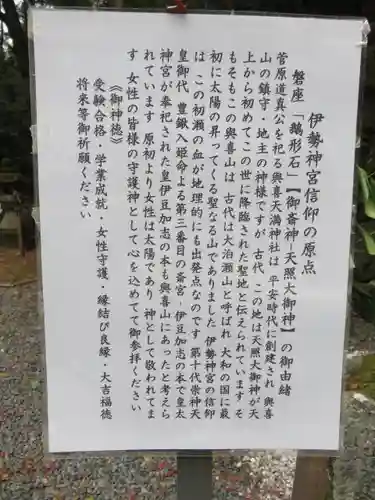 伊勢神宮信仰の原点
磐座「鵝形石」【御斎神-天照大御神】の御由緒
菅原道真公を祀る與喜天満神社は 平安時代に創建され 與喜
山の鎮守・地主の神様ですが 古代 この地は天照大御神が天
上から初めてこの世に降臨された聖地と伝えられています そ
もそもこの與喜山は 古代は大泊瀬山と呼ばれ 大和の国に最
初に太陽の昇ってくる聖なる山でありました 伊勢神宮の信仰
は この初瀬の血が地理的にも出発点なのです 第十代崇神天
皇御代 豊鍬入姫命よる第三番目の斎宮-伊豆加志の本で皇太
神宮が奉祀された皇伊豆加志の本も與喜山にあったと考えら
れています 原初より女性は太陽であり 神として敬われてま
す 女性の皆様の守護神として心を込めてて御参拝ください
《御神徳》
受験合格・学業成就・女性守護・縁結び良縁・大吉福徳
将来等御祈願ください